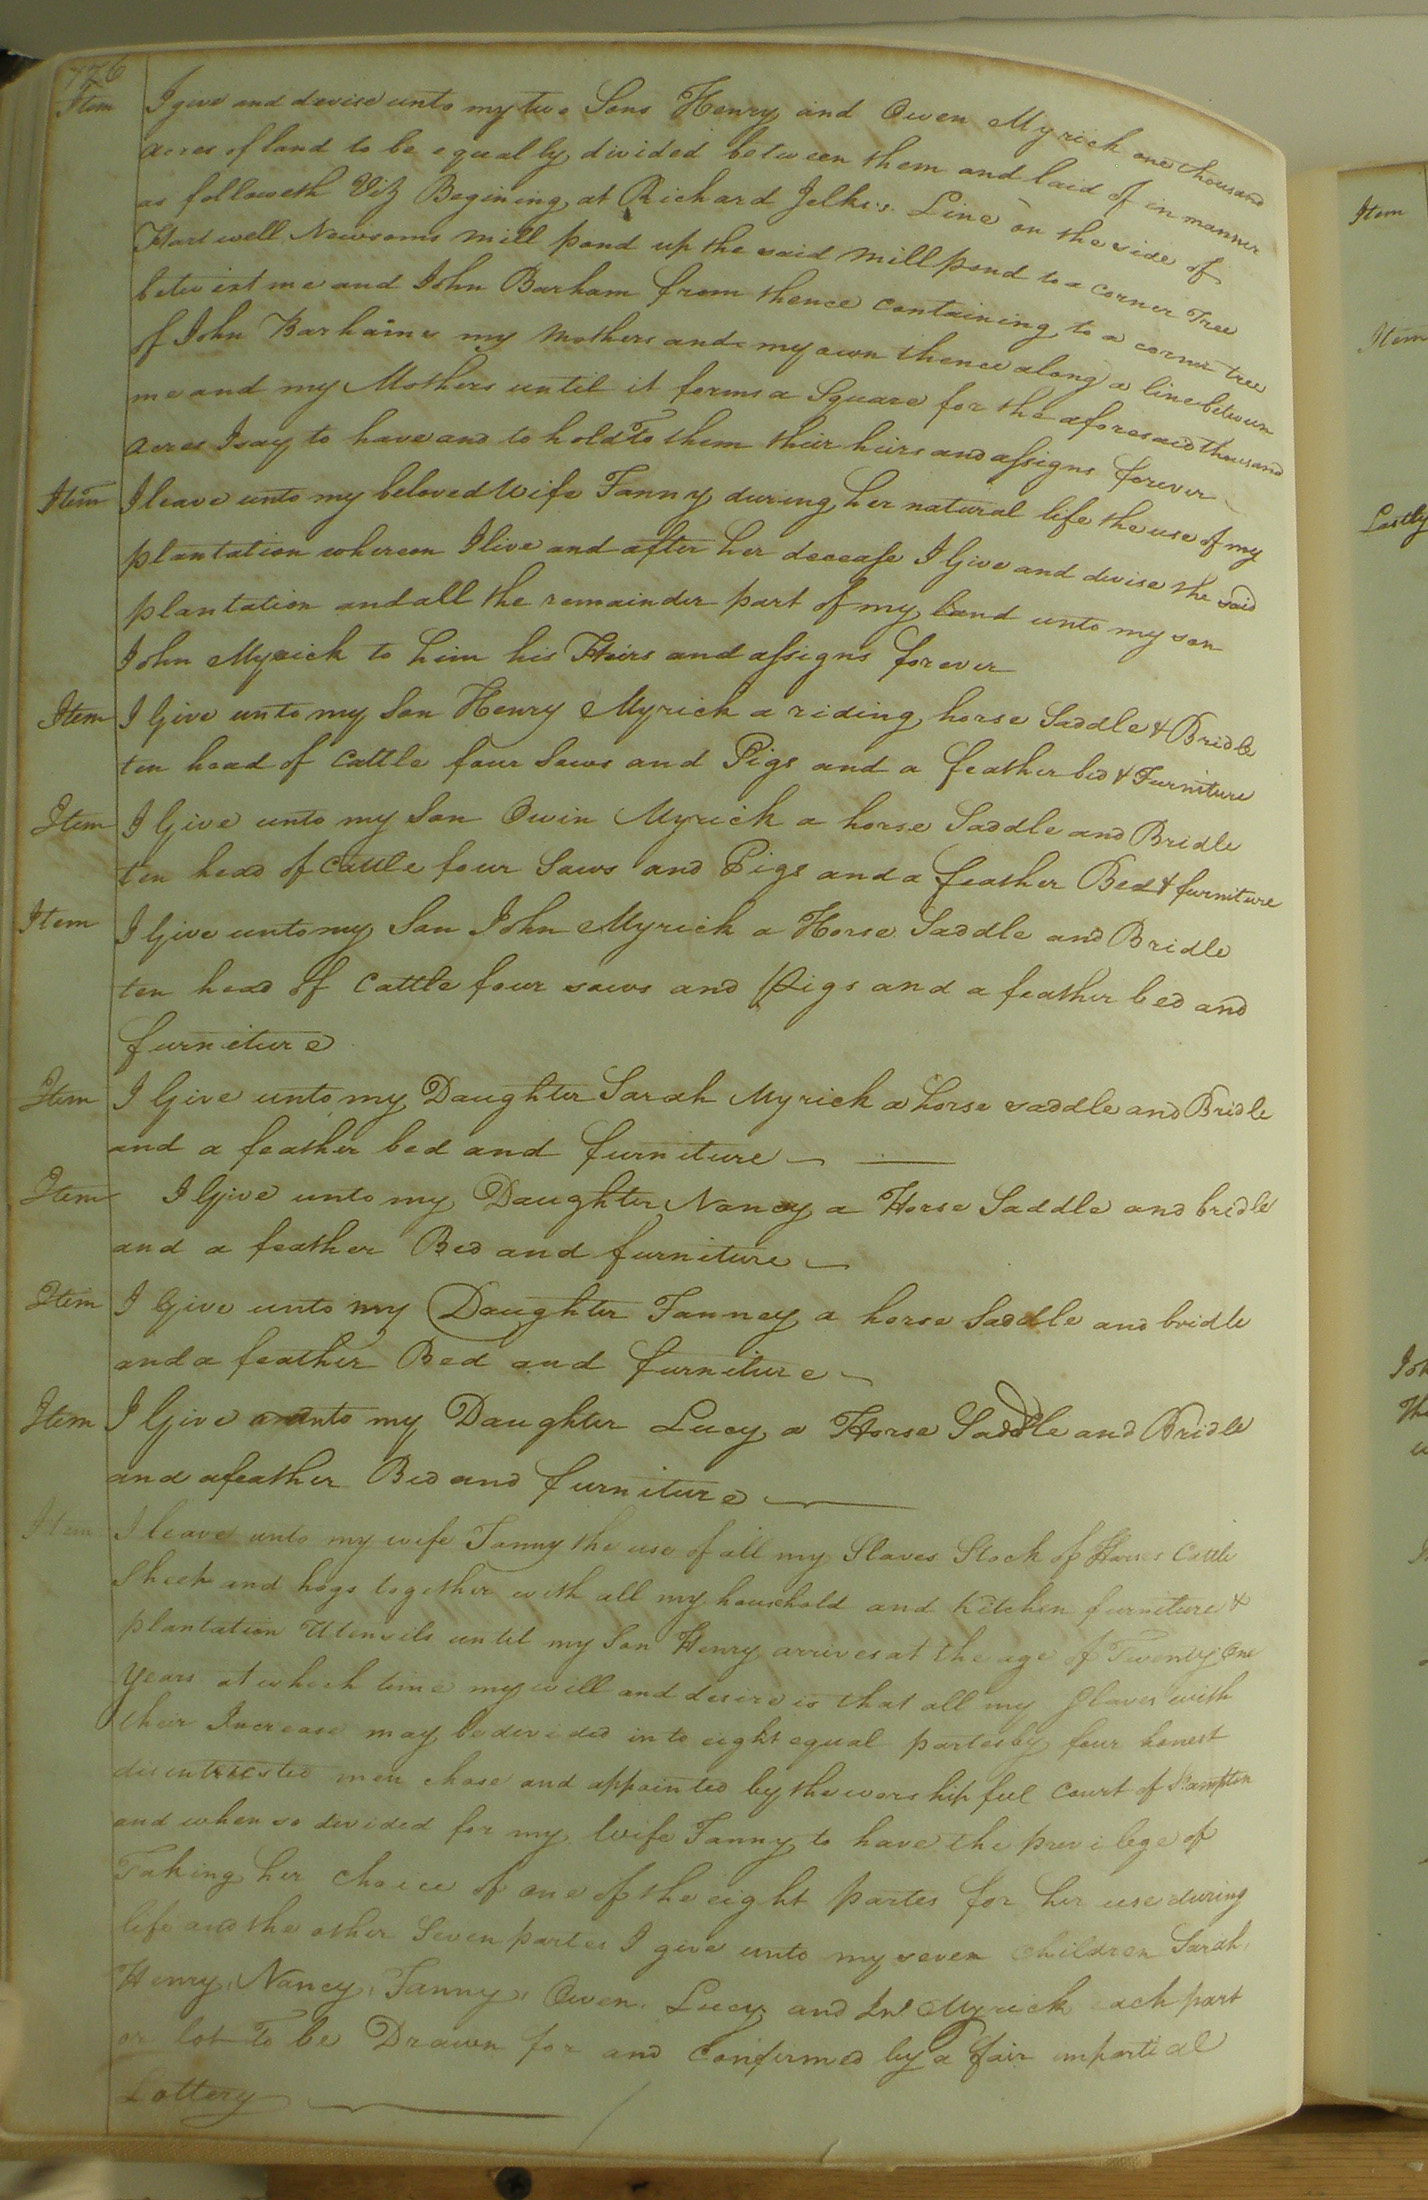 726
Item I give and devise unto my two Sons Henry and Owen Myrick one thousand
acres of land to be equally divided between them and laid of in manner
as followeth Viz Begining at Richard Jelks's Line on the side of
Hartwell Newsoms mill pond up the said mill pond to a corner Tree
betwixt me and John Barham from thence containing to a corner tree
of John Barhams my Mothers and my own thence along a line between
me and my Mothers until it forms a Square for the aforesaid thousand
acres I say to have and to hold To them their heirs and assigns forever
Item I leave unto my beloved Wife Fanny during her natural life the use of my
plantation whereon I live and after her decease I Give and devise the said
plantation and all the remainder part of my land unto my son
John Myrick to him his Heirs and assigns forever
Item I Give unto my Son Henry Myrick a riding horse Saddle & Bridle
ten head of Cattle four Sows and Pigs and a feather bed & Furniture
Item I Give unto my Son Owin Myrick a horse Saddle and Bridle
ten head of Cattle four Sows and Pigs and a feather Bed & furniture
Item I Give unto my Son John Myrick a Horse Saddle and Bridle
ten head of Cattle four sows and Pigs and a feather bed and
furniture
Item I Give unto my Daughter Sarah Myrick a horse saddle and Bridle
and a feather bed and furniture
Item I Give unto my Daughter Nancy a Horse Saddle and bridle
and a feather Bed and furniture
Item I Give unto my Daughter Fanney a horse Saddle and bridle
and a feather Bed and furniture
Item I Give unto my Daughter Lucy a Horse Saddle and Bridle
and a feather Bed and furniture
Item I leave unto my wife Fanny the use of all my Slaves Stock of Horses Cattle
Sheep and hogs together with all my household and Kitchen furniture &
plantation Utensils until my Son Henry arrives at the age of Twenty One
Years at which time my will and desire is that all my Slaves with
their Increase may be divided into eight equal partes by four honest
disintrested men chose and appointed by the worshipful Court of S:ampton
and when so devided for my Wife Fanny to have the previlege of
Taking her choice of one of the eight partes for her use during
life and the other Seven partes I give unto my seven Children Sarah,
Henry, Nancy, Fanny, Owen, Lucy and Jno Myrick each part
or lot To be Drawn for and Confirmed by a fair impartial
Lottery
Item
Item
Lastly